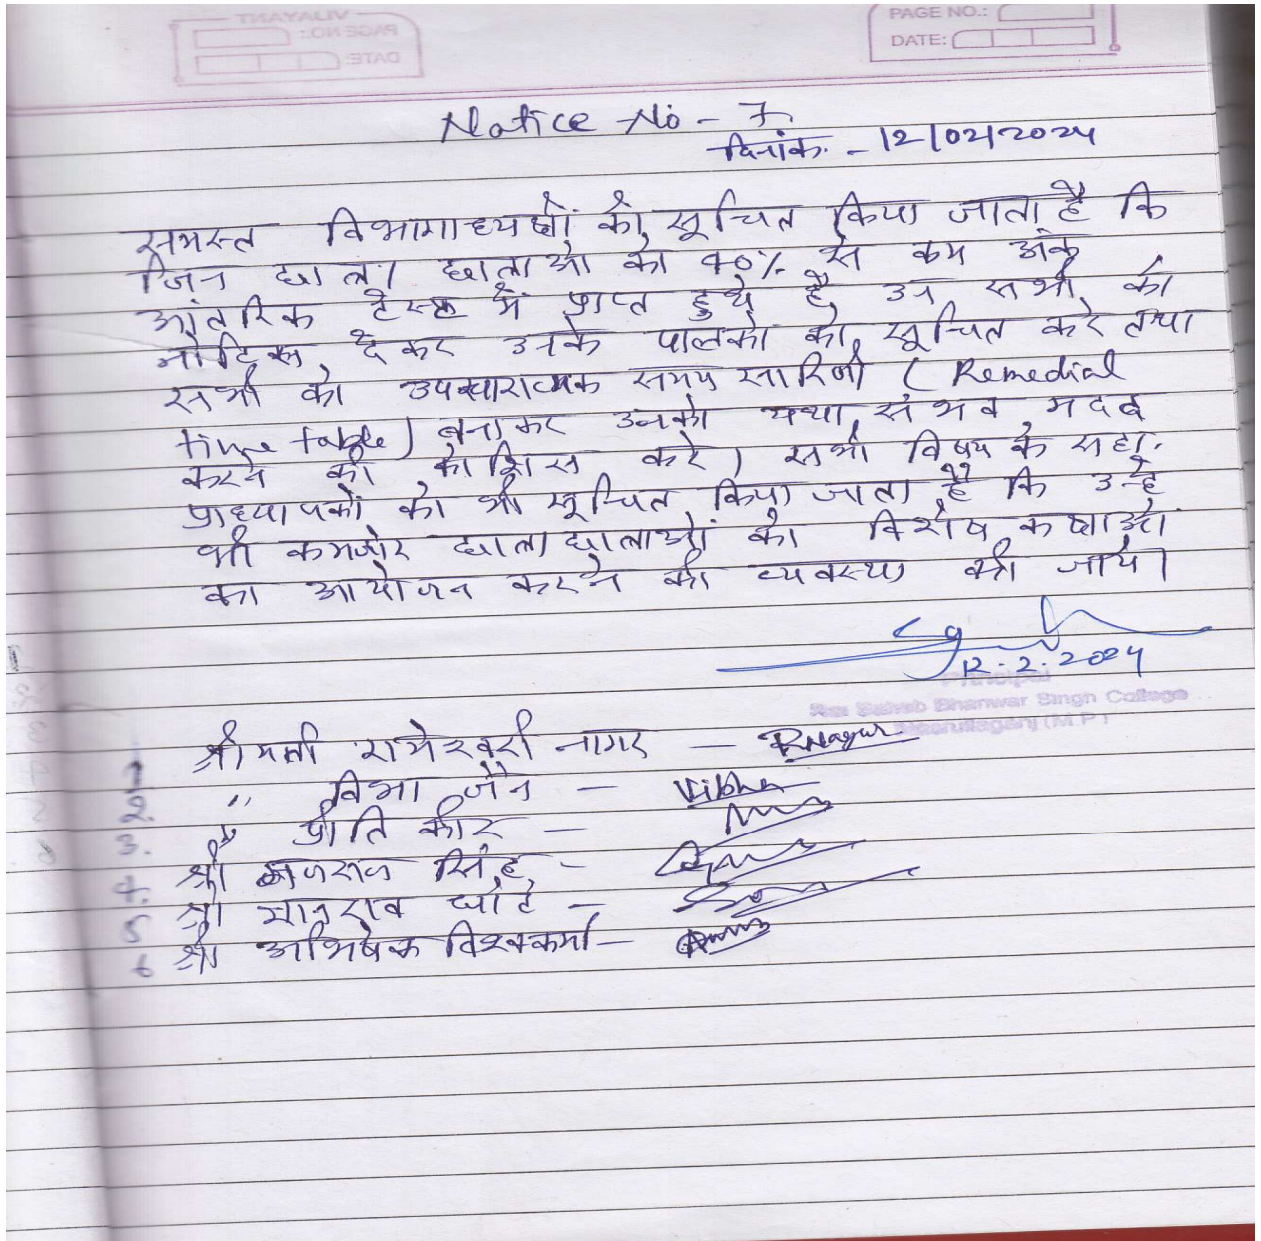 VIJAYANT
PAGE NO.:
DATE:
PAGE NO.:
DATE:
Notice No - 7
दिनांक - 12/02/2024
समस्त विभागाध्यक्षों को सूचित किया जाता है कि
जिन छात्र/ छात्राओ को 40% से कम अंक
आंतरिक टेस्ट में प्राप्त हुये है, उन सभी को
नोटिस देकर उनके पालको को सूचित करे तथा
सभी को उपचारात्मक समय सारिणी ( Remedial
time table) बनाकर उनको यथा संभव मदद
करने की कोशिस करे। सभी विषय के सहा.
प्राध्यापकों को भी सूचित किया जाता है कि उन्हे
भी कमजोर छात्र/छात्राओं की विशेष कक्षाओ
का आयोजन करने की व्यवस्था की जाये।
12.2.2024
Principal
Rai Saheb Bhanwar Singh College
Nasrullaganj (M.P.)
1 श्रीमती रामेश्वरी नागर — RNagar
2. " विभा जैन — Vibha
3. " प्रीति कीर —
4. श्री गजराज सिंह -
5 श्री मानराव घाटे —
6 श्री अभिषेक विश्वकर्मा —